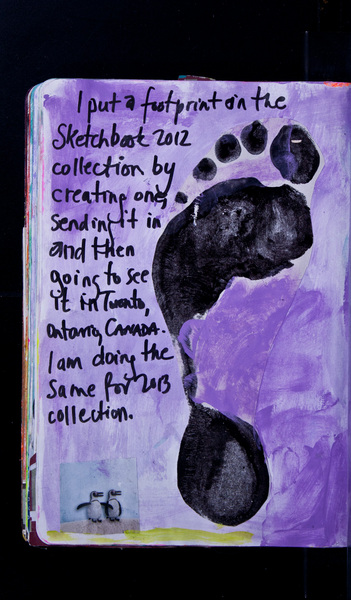 I put a footprint on the
Sketchbook 2012
collection by
creating one,
sending it in
and then
going to see
it in Toronto,
Ontario, CANADA.
I am doing the
same for 2013
collection.